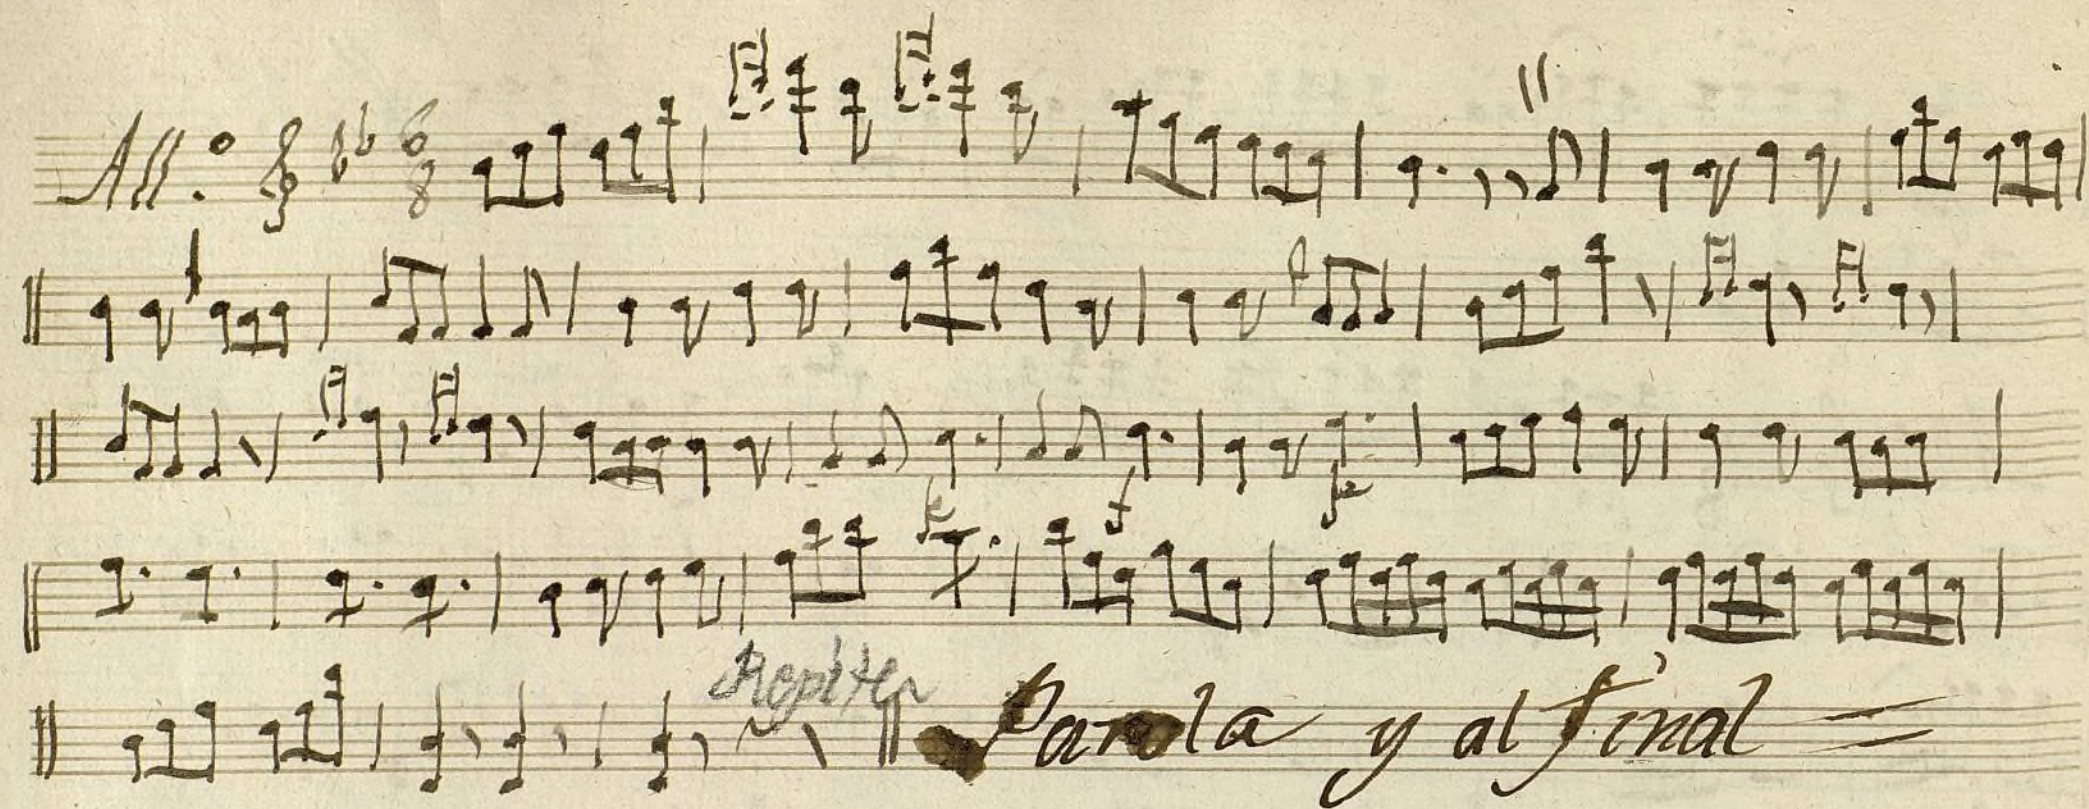 All.o 6/8
f
fe
Repite
Parola y al final